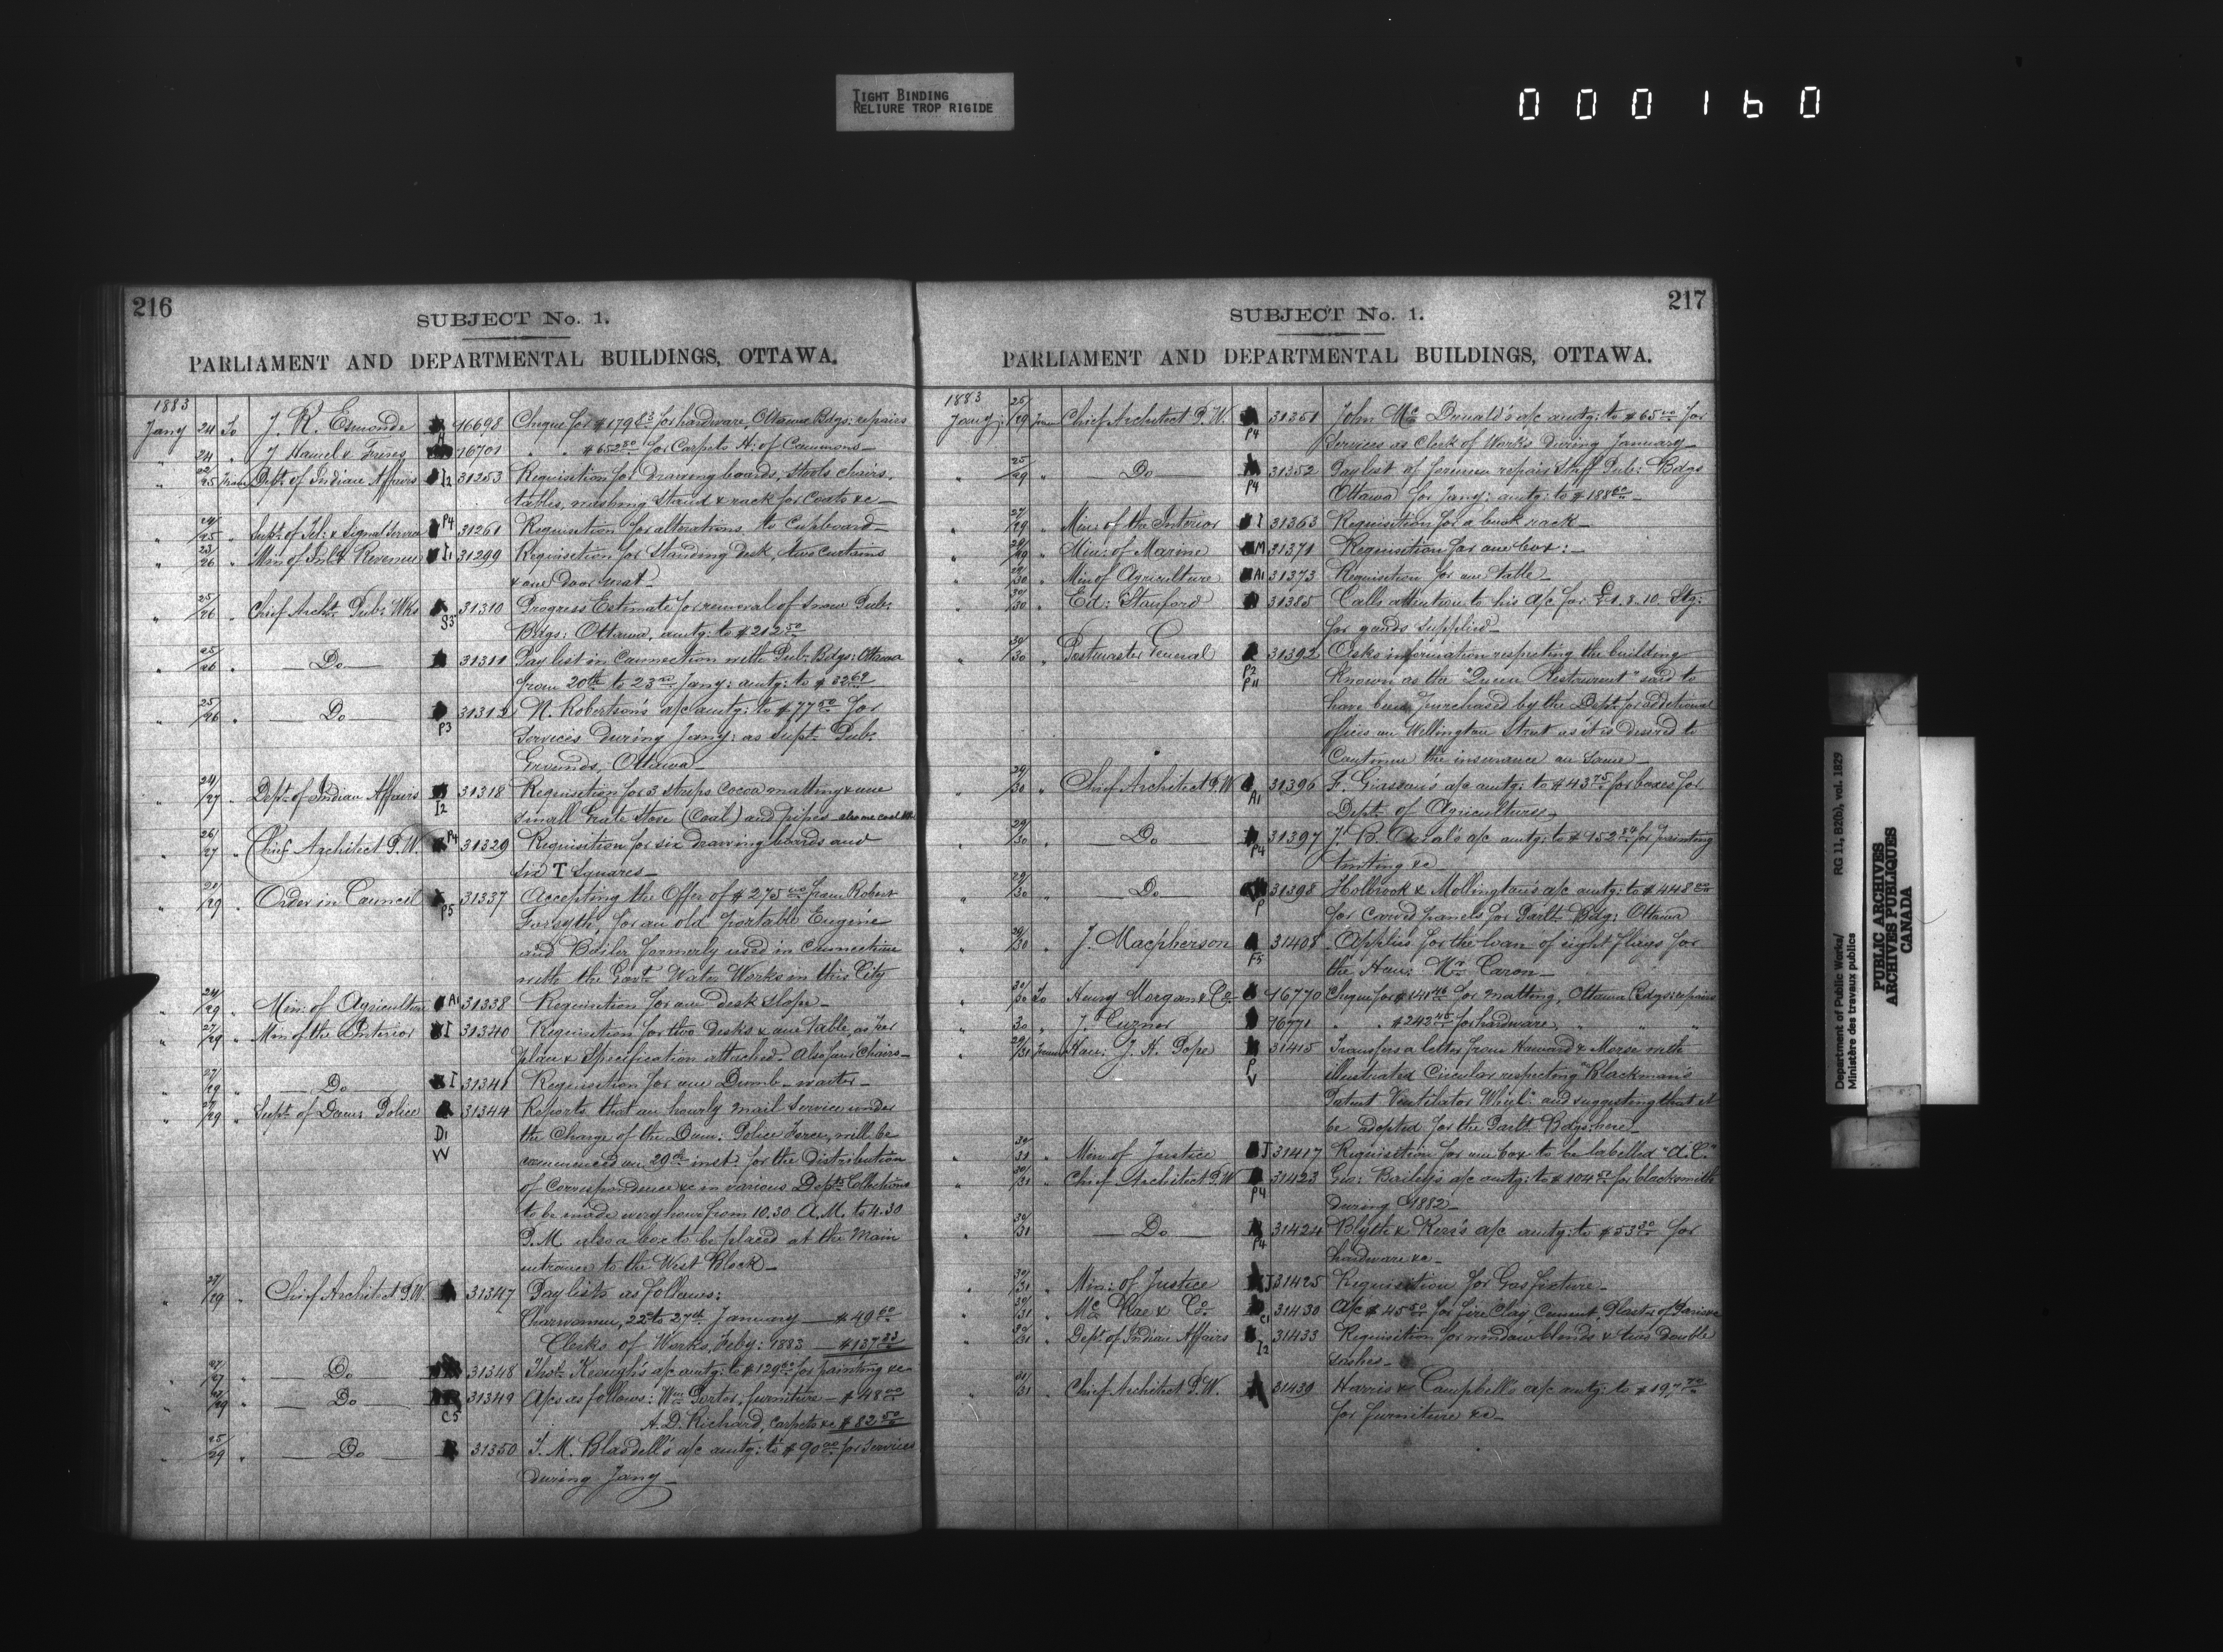 TIGHT BINDING
RELIURE TROP RIGIDE
000160
216
SUBJECT No. 1.
PARLIAMENT AND DEPARTMENTAL BUILDINGS, OTTAWA.
1883
Jany 24 To J. R. Esmonde 16698 Cheque for $179 83 for hardware, Ottawa Bdgs: repairs
" 24 " J Hamel & Freres A 16701 " " $652 80 for Carpets H: of Commons
" 22/25 From Dept: of Indian Affairs I2 31253 Requisition for drawing boards, stools chairs,
tables, washing stand & rack for Coats &c
" 24/25 " Supt: of Tel: & Signal Service P4 31261 Requisition for alterations to Cupboard
" 23/26 " Min: of Inld Revenue I1 31299 Requisition for Standing desk, two curtains
& one door mat
" 25/26 " Chief Archt: Pub: Wks S3 31310 Progress Estimate for removal of snow Pub:
Bdgs: Ottawa, amtg: to $212 50
" 25/26 " Do 31311 Pay list in Connection with Pub: Bdgs: Ottawa
from 20th to 23rd Jany: amtg: to $ 32 62
" 25/26 " Do P3 31312 N. Robertson's a/c amtg: to $77 50 for
Services during Jany: as Supt: Pub:
Grounds, Ottawa
" 24/27 " Dept: of Indian Affairs I2 31318 Requisition for 3 strips Cocoa matting & one
small Grate Stove (Coal) and pipes also one coal
" 26/27 " Chief Architect P.W. P4 31329 Requisition for six drawing boards and
six T Squares
" /29 " Order in Council P5 31337 Accepting the Offer of $275 00 from Robert
Forsyth, for an old portable Engine
and Boiler formerly used in Connection
with the Govt: Water Works in this City
" 24/29 " Min: of Agriculture A1 31338 Requisition for one desk slope
" 27/29 " Min of the Interior I 31340 Requisition for two desks & one table, as per
plan & Specification attached. Also four Chairs
" 27/29 " Do I 31341 Requisition for one Dumb-waiter
" 27/29 " Supt: of Dom: Police 31344 Reports that an hourly mail service under
D1 the Charge of the Dom: Police Force, will be
W commenced on 29th inst: for the distribution
of Correspondence &c in various Depts: Collections
to be made every hour from 10.30 A.M. to 4.30
P.M. also a box to be placed at the Main
entrance to the West Block
" 27/29 " Chief Architect P.W. 31347 Paylists as follows:
Charwomen, 22nd to 27th January $49 60
Clerks of Works, Feby: 1883 $137 33
" 27/27 " Do 31348 Thos: Keough's a/c amtg: to $129 for painting &c
" /29 " Do C5 31349 A/cs as follows: Wm Porter, furniture $48 00
A. D. Richard, Carpets &c $82 50
" 25/29 " Do 31350 T. M. Blasdell's a/c amtg: to $90 00 for services
during Jany
217
SUBJECT No. 1.
PARLIAMENT AND DEPARTMENTAL BUILDINGS, OTTAWA.
1883
Jany: 25/29 From Chief Architect P.W. P4 31351 John McDonald's a/c amtg: to $65 00 for
Services as Clerk of Works during January
" 25/29 " Do P4 31352 Paylist of foremen repair Staff Pub: Bdgs
Ottawa for Jany: amtg: to $188 60
" 27/29 " Min: of the Interior I 31363 Requisition for a book rack
" 29 " Min: of Marine M 31371 Requisition for one box:
" 29/30 " Min of Agriculture A1 31373 Requisition for one table
" 30/30 " Ed: Stanford 31385 Calls attention to his a/c for £1.8.10 Stg:
for goods supplied
" 30/30 " Postmaster General 31392 Asks information respecting the building
P2 P11 known as the "Queen Restaurant" said to
have been purchased by the Dept: for additional
offices on Wellington Street as it is desired to
Continue the insurance on same
" 29/30 " Chief Architect P.W. A1 31396 F. a/c amtg: to $43 75 for boxes for
Dept: of Agriculture
" 29/30 " Do P4 31397 J. B. a/c amtg: to $152 84 for painting
tinting &c
" 29/30 " Do P 31398 Holbrook & Mollington's a/c amtg: to $448 00
for carved panels for Parlt: Bdg: Ottawa
" 30 " J. Macpherson F5 31408 Applies for the loan of eight flags for
the Hon: Mr Caron
" 30/30 To Henry Morgan & Co 16770 Cheque for $141 46 for matting, Ottawa Bdgs: repairs
" 30 " J. Cuzner 16771 " " $242 45 for hardware, " " "
" 29/31 From Hon: J. H. Pope 31415 Transfers a letter from Howard & Morse with
P V illustrated Circular respecting "Blackman's
Patent Ventilator Wheel" and suggesting that it
be adopted for the Parlt: Bdgs: here
" 30/31 " Min: of Justice J 31417 Requisition for one box to be labelled
" 30/31 " Chief Architect P.W P4 31423 Geo: Bailey's a/c amtg: to $104 for blacksmith
during 1882
" 30/31 " Do P4 31424 Blyth & Kerr's a/c amtg: to $53 30 for
hardware &c
" 30/31 " Min: of Justice J 31425 Requisition for Gas fixture
" 30/31 " McRae & Co C1 31430 A/c $45 50 for fire Clay, Cement, Plaster of Paris &c
" 30/31 " Dept: of Indian Affairs I2 31433 Requisition for window blinds & two double
sashes
" 31/31 " Chief Architect P.W. 31439 Harris & Campbell's a/c amtg: to $19,7
for furniture &c
Department of Public Works/ RG 11, B2(b), vol. 1829
Ministère des travaux publics
PUBLIC ARCHIVES
ARCHIVES PUBLIQUES
CANADA